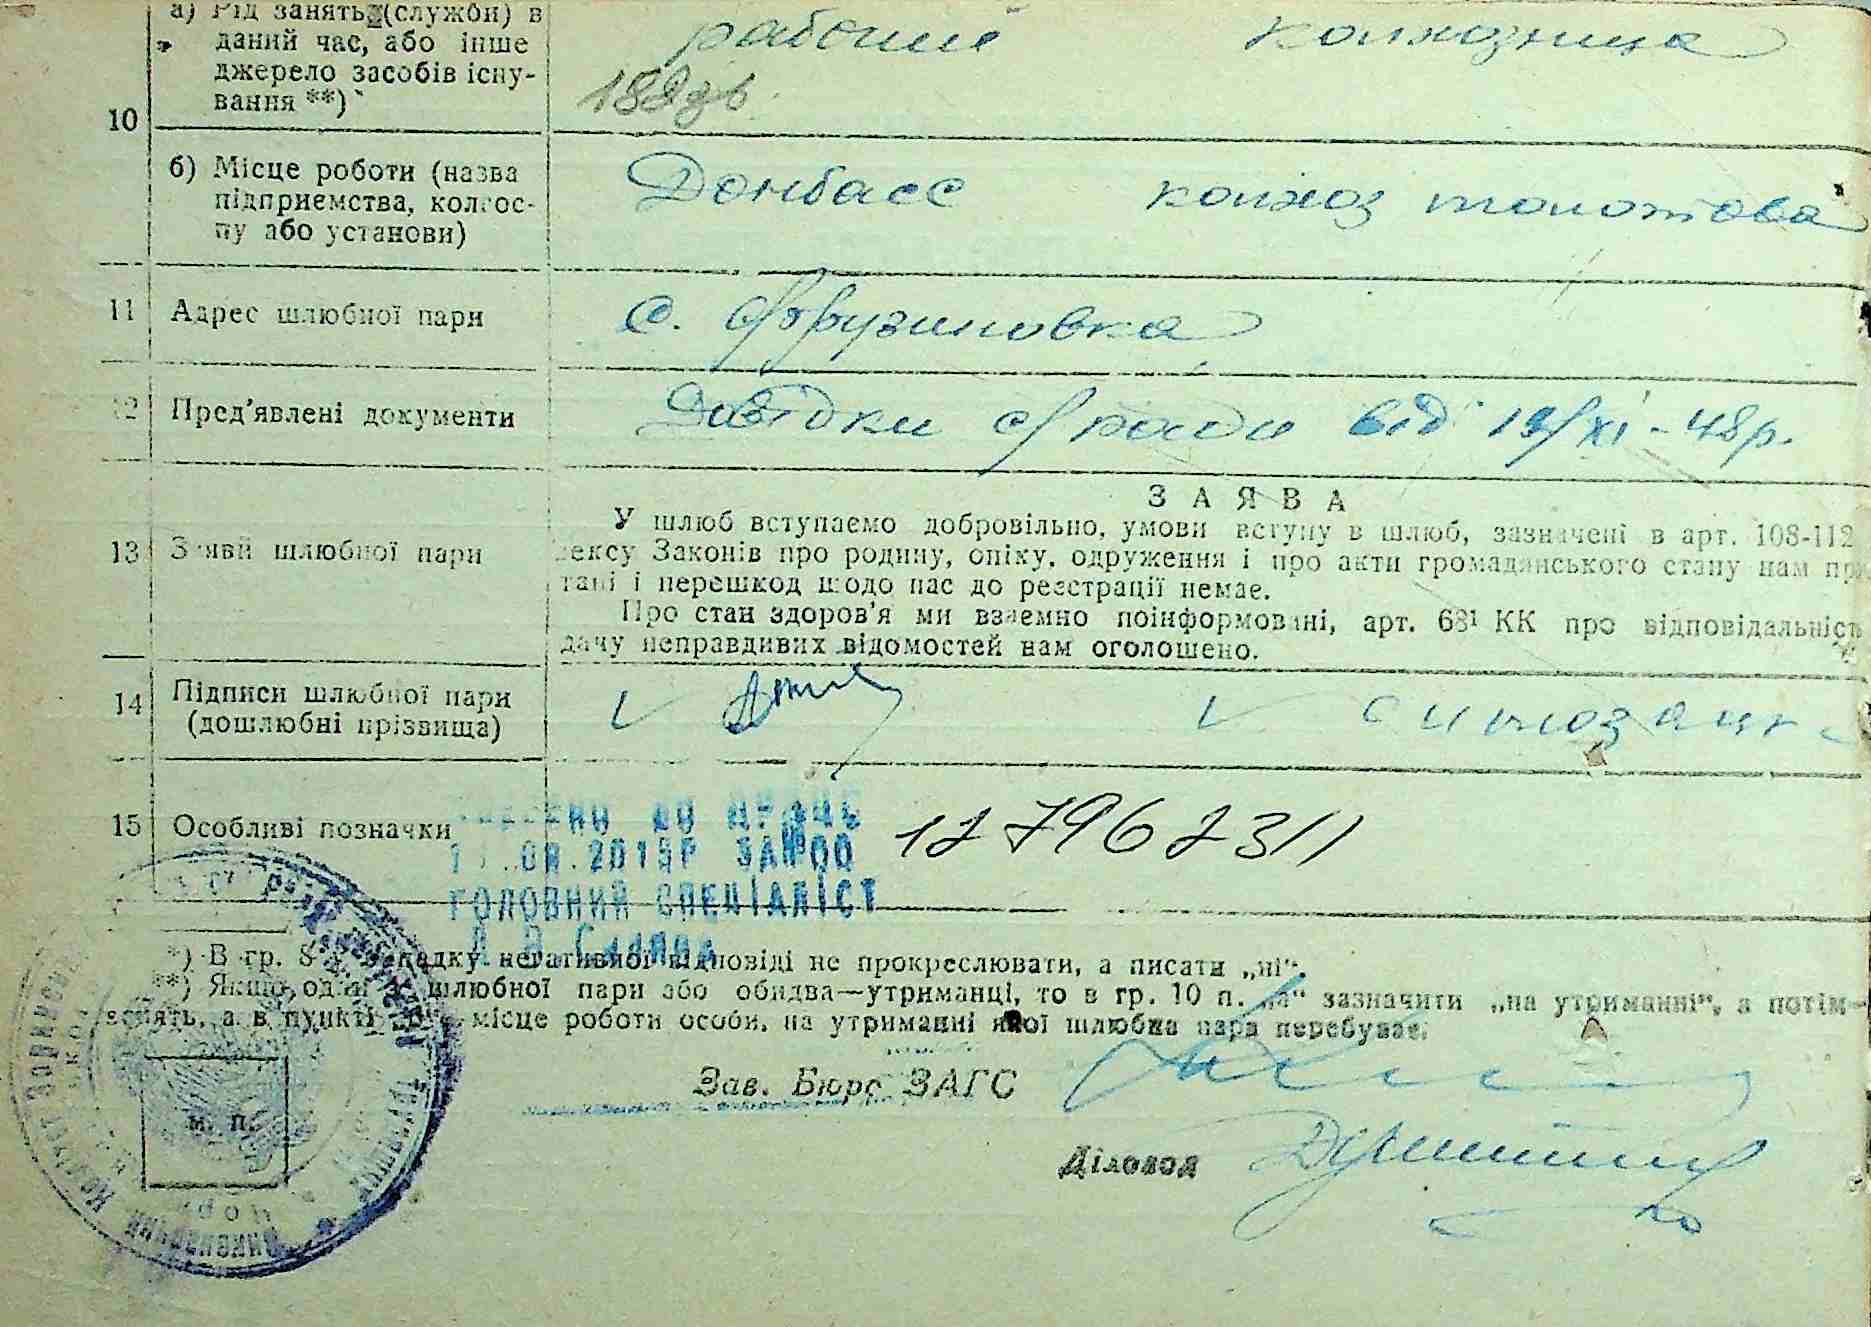 а) Рід занять (служби) в
даний час, або інше
джерело засобів існу-
вання **)
рабочий колхозница
10
б) Місце роботи (назва
підприємства, колгос-
пу або установи)
Донбасс колхоз молотова
11 Адрес шлюбної пари
с. Фрузиновка
12 Пред'явлені документи
Довідки с/ради від 19/XI-48р.
З А Я В А
13 Заяви шлюбної пари
У шлюб вступаємо добровільно, умови вступу в шлюб, зазначені в арт. 108-112
дексу Законів про родину, опіку, одруження і про акти громадянського стану нам при
тані і перешкод щодо нас до реєстрації немає.
Про стан здоров'я ми взаємно поінформовані, арт. 68¹ КК про відповідальність
дачу неправдивих відомостей нам оголошено.
14 Підписи шлюбної пари
(дошлюбні прізвища)
15 Особливі позначки
ДО
ГОЛОВНИЙ СПЕЦІАЛІСТ
127962311
*) В гр. 8 у випадку негативної відповіді не прокреслювати, а писати „ні“.
**) Якщо один з шлюбної пари або обидва—утриманці, то в гр. 10 п. „а“ зазначити „на утриманні“, а потім—
занять, а в пункті місце роботи особи, на утриманні якої шлюбна пара перебуває.
Зав. Бюро ЗАГС
м. п.
Діловод